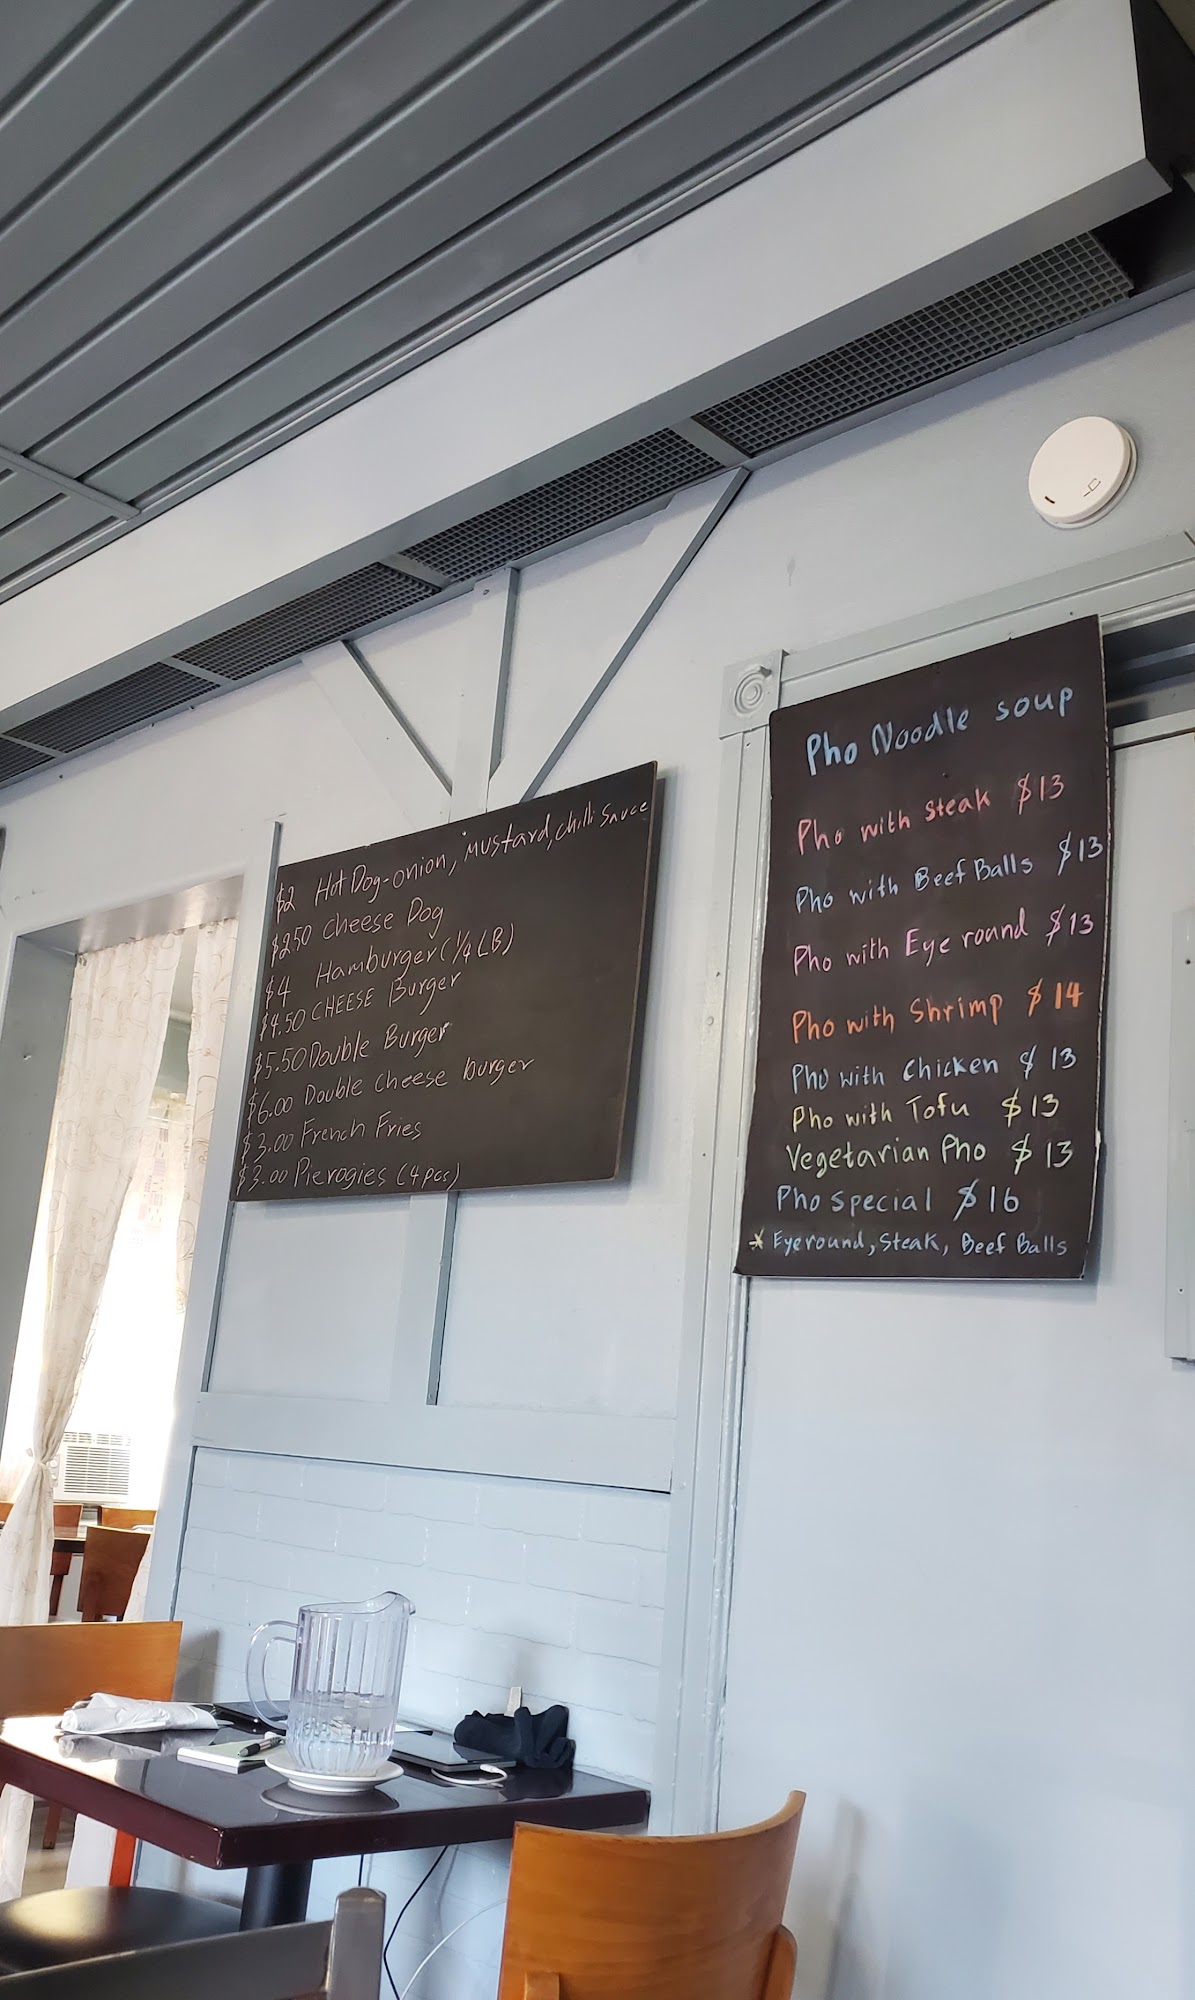 $2 Hot Dog-onion, Mustard, chilli Sauce
$2.50 Cheese Dog
$4 Hamburger (1/4 LB)
$4.50 CHEESE Burger
$5.50 Double Burger
$6.00 Double Cheese burger
$3.00 French Fries
$3.00 Pierogies (4pcs)
Pho Noodle soup
Pho with steak $13
Pho with Beef Balls $13
Pho with Eye round $13
Pho with Shrimp $14
Pho with Chicken $13
Pho with Tofu $13
Vegetarian Pho $13
Pho special $16
* Eyeround, Steak, Beef Balls